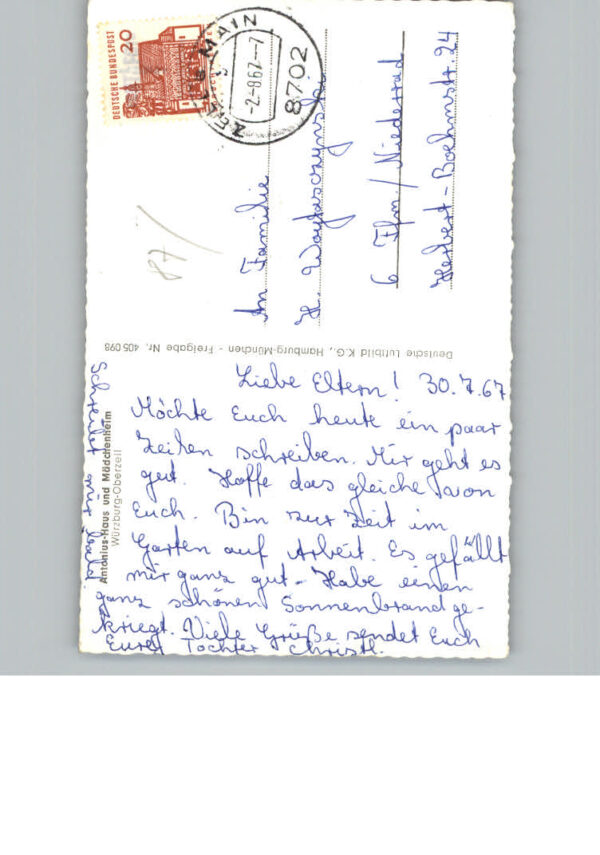 DEUTSCHE BUNDESPOST
20
-2.-8.67-7
8702
An Familie
H.
6 Ffm/Niederrad
Herbert-Boehmstr. 24
87/
Deutsche Luftbild K.G., Hamburg-München - Freigabe Nr. 405 098
Antonius-Haus und Mädchenheim
Würzburg-Oberzell
Liebe Eltern! 30.7.67
Möchte Euch heute ein paar
Zeilen schreiben. Mir geht es
gut. Hoffe das gleiche von
Euch. Bin zur Zeit im
Garten auf Arbeit. Es gefällt
mir ganz gut - Habe einen
ganz schönen Sonnenbrand ge-
kriegt. Viele Grüße sendet Euch
Eure Tochter Christl.
Schreibt mir bald!